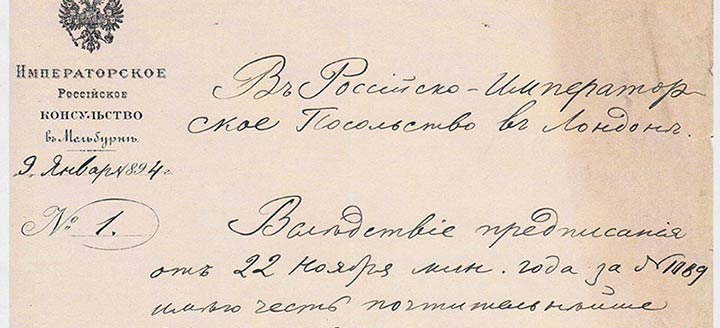 ИМПЕРАТОРСКОЕ
РОССІЙСКОЕ
КОНСУЛЬСТВО
въ Мельбурнѣ.
9 Января 1894 г.
№ 1.
Въ Россійско-Император-
ское Посольство въ Лондонѣ.
Вслѣдствіе предписанія
отъ 22 Ноября мин. года за № 1189
имѣю честь почтительнѣйше